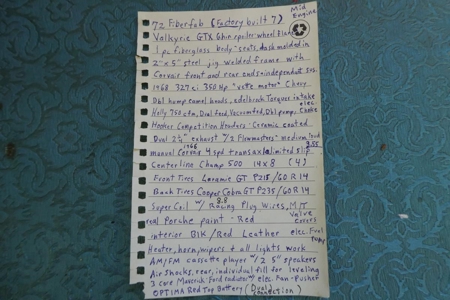 72 Fiberfab (Factory built 7) Mid Engine
Valkyrie GTX 6hin spoiler-wheel flares
1 pc fiberglass body-seats, dash molded in
2"x5" steel jig welded frame with
Corvair front and rear ends independent sus.
1968 327 ci 350 Hp "vette motor" Chevy
Dbl hump camel heads, edelbrock Torquer intake
Holly 750 cfm, Dual feed, Vacuum fed, Dbl pump, elec. Choke
Hooker Competition Headers - Ceramic coated
Dual 2½" exhaust w/2 Flowmasters medium loud
manual Corvair 1966 4 spd transaxle limited slip 3.55
Centerline Champ-500 14x8 (4)
Front Tires Laramie GT P215/60R14
Back Tires Cooper Cobra GT P235/60R14
Super Coil w/ 8.8 Racing Plug Wires, M/T Valve covers
real Porche paint - Red
interior Blk/Red Leather elec. Fuel Pump
Heater, horn, wipers & all lights work
AM/FM cassette player w/2 5" speakers
Air Shocks, rear, individual fill for leveling
3 core Maverick Ford radiator w/ elec. Fan-Pusher
OPTIMA Red Top Battery (Dual connection)